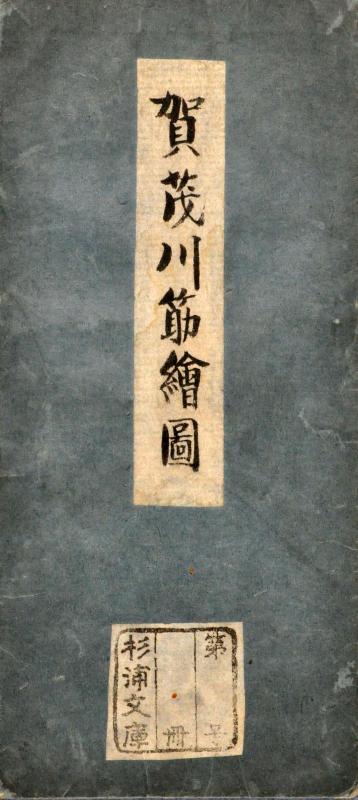 賀茂川筋繪圖
第 号
冊
杉浦文庫